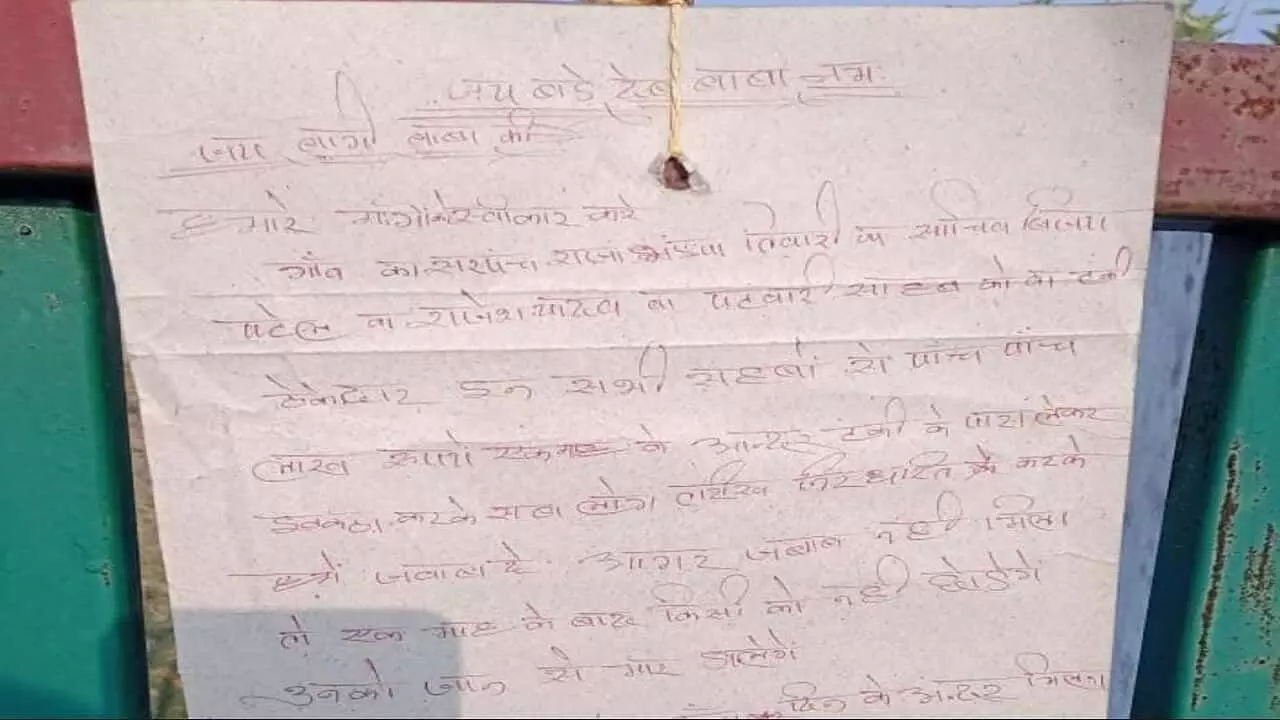 जय बाडे देव बाबा नमः
जय बागी बाबा की
हमारे मांगो को स्वीकार करे
गाँव का सरपंच राजा तिवारी व सचिव विजय
पटेल व राजेश यादव वा पटवारी साहब को वा टंकी
ठेकेदार इन सभी साहबों से पांच पांच
लाख रूपये एक माह के आन्दर टंकी के पास लेकर
इक्कठा करके सब लोग तारीख निरधारित करके
हमें जवाब दे आगर जबाब नही मिला
तो एक माह के बाद किसी को नही छोडेगे
उनको जान से मार डालेगें
दिन के अन्दर मिलना